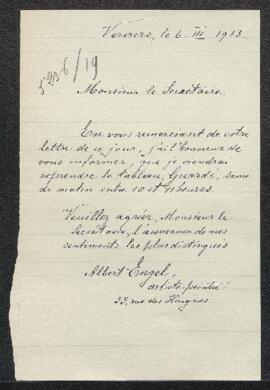 Verviers, le 6. III 1913
5236/19
Monsieur le Secrétaire,
En vous remerciant de votre
lettre de ce jour, j'ai l'honneur de
vous informer, que je viendrai
reprendre le tableau, Guardé, same
di matin entre 10 et 11 heures.
Veuillez agréer, Monsieur le
Secrétaire, l'assurance de mes
sentiments les plus distingués
Albert Engel,
artiste-peintre
33, rue des Hougnes.